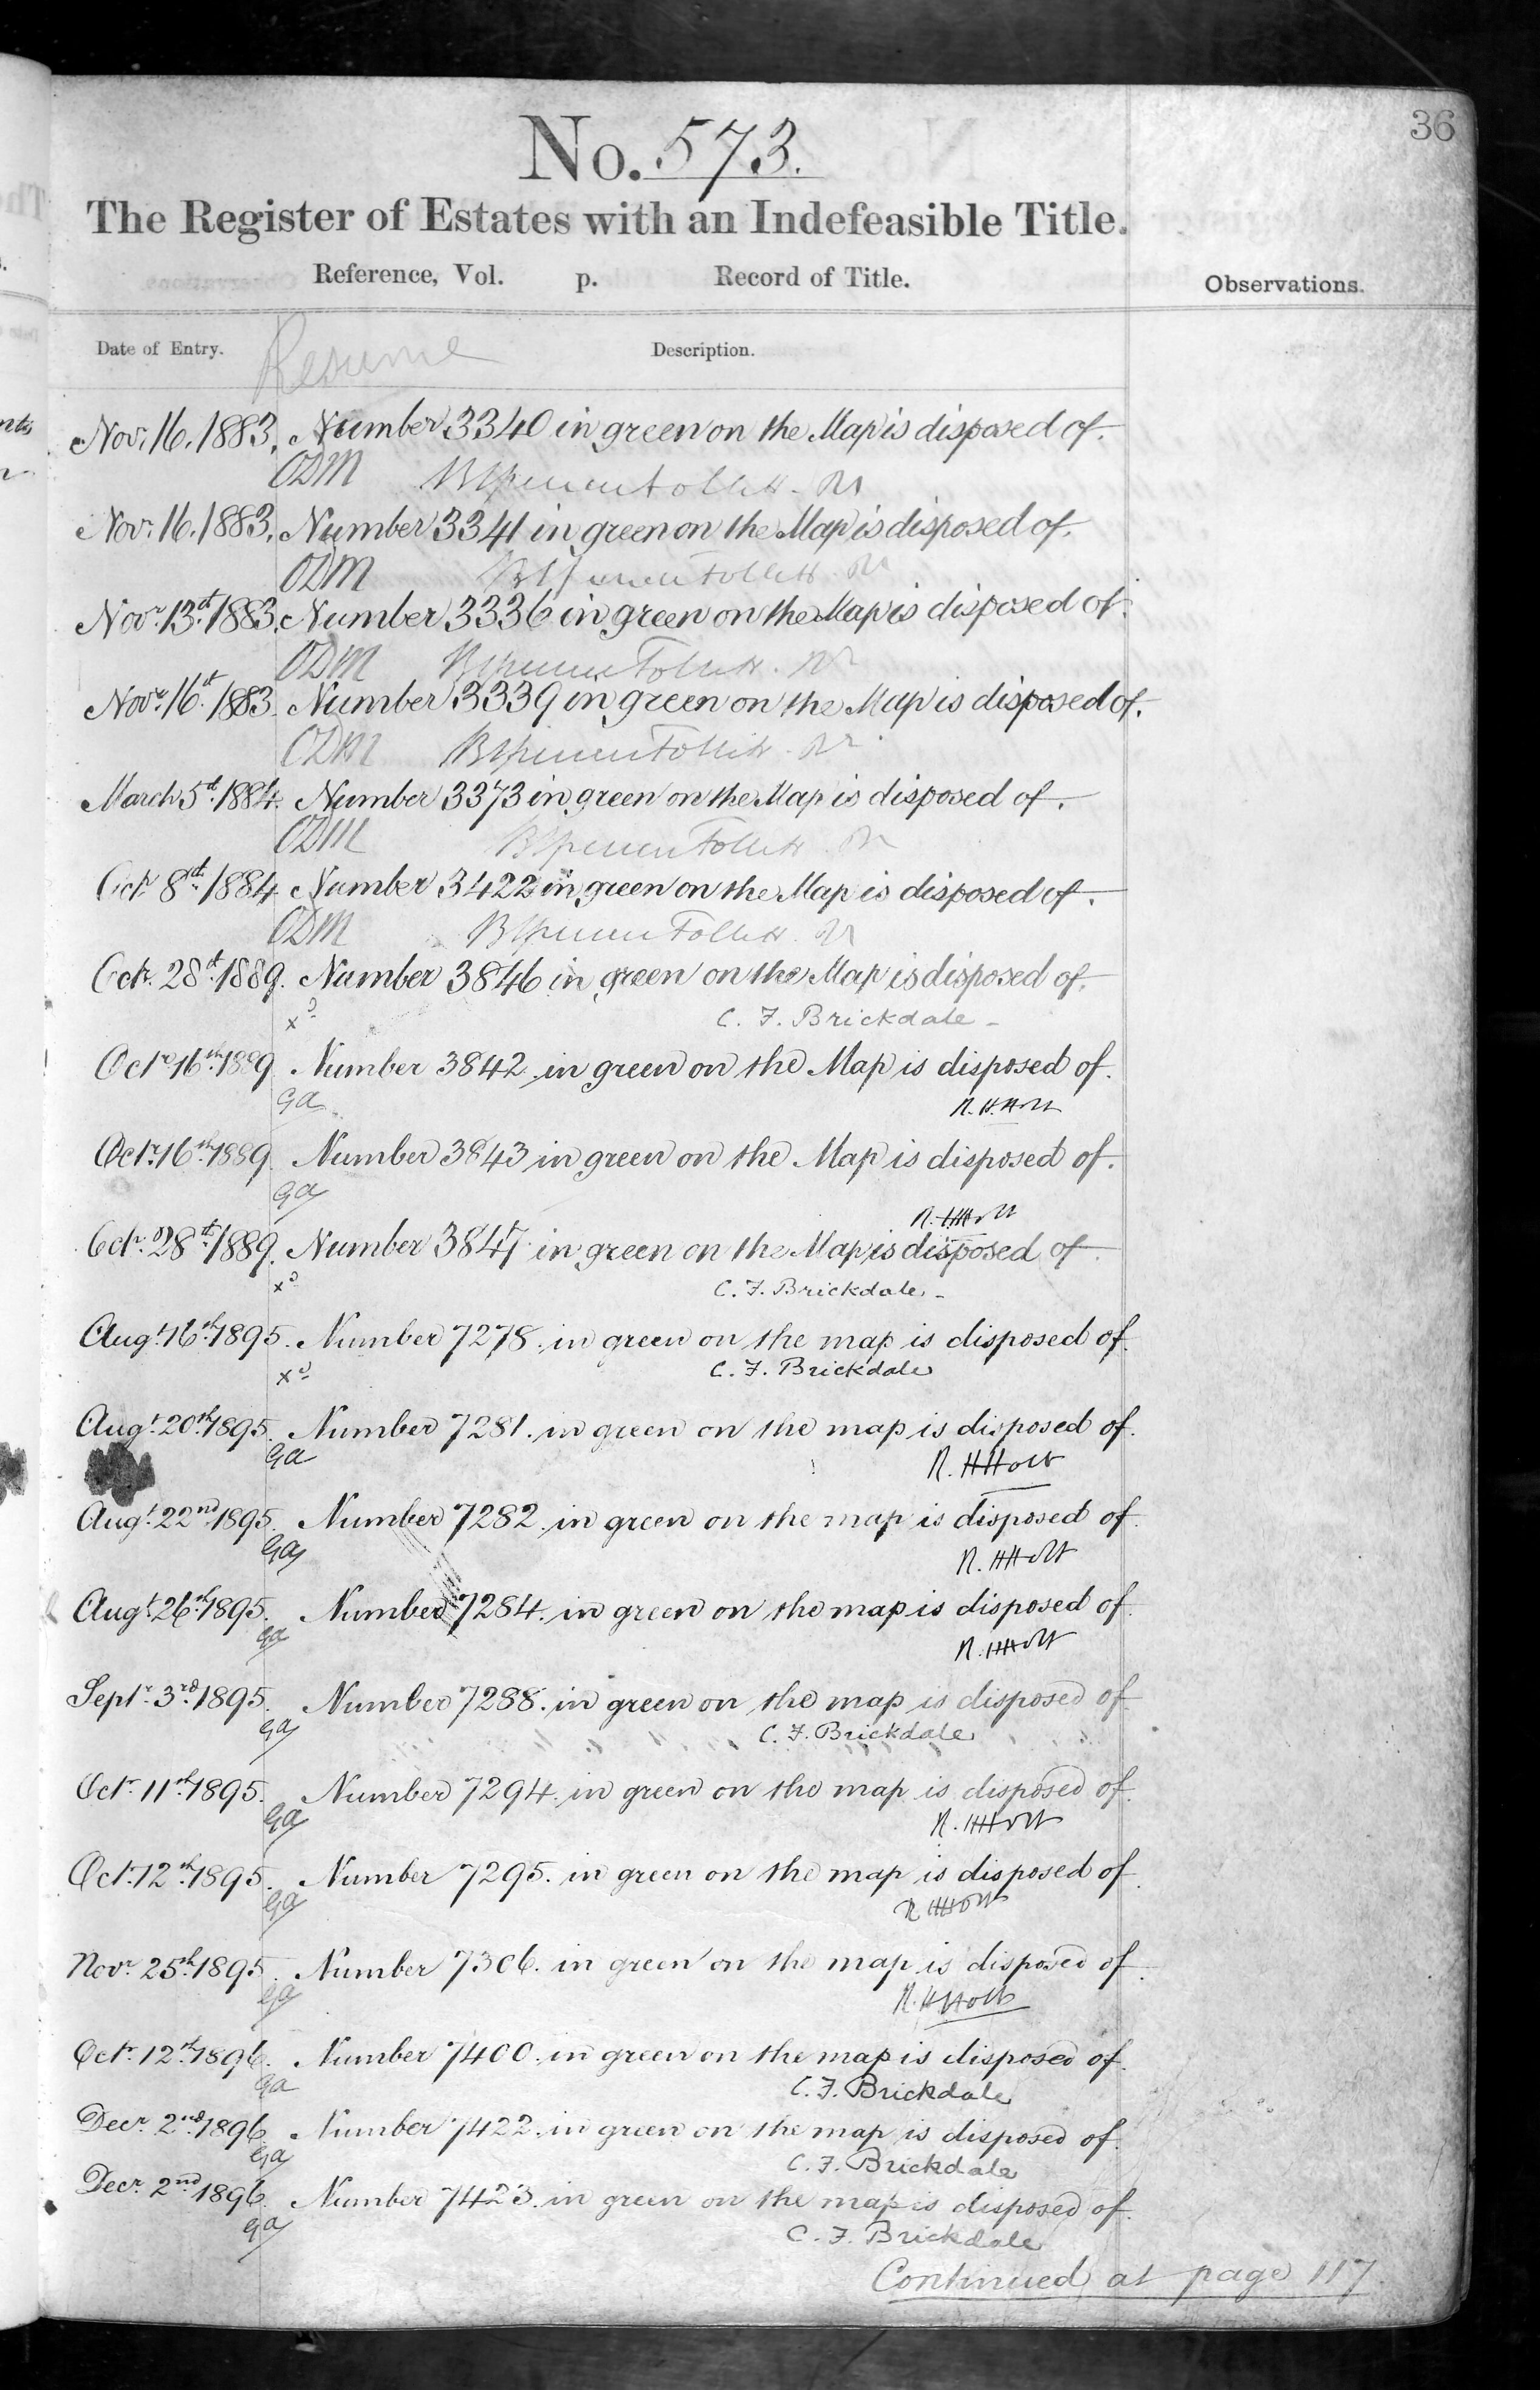 36
No. 573.
The Register of Estates with an Indefeasible Title.
Reference, Vol. p. Record of Title.
Observations.
Date of Entry. Resume Description.
Novr. 16. 1883. Number 3340 in green on the Map is disposed of.
ODM Brent Spencer Follett. Rr
Novr. 16. 1883. Number 3341 in green on the Map is disposed of.
ODM
Novr. 13th. 1883. Number 3336 in green on the Map is disposed of.
ODM
Novr. 16th. 1883. Number 3339 in green on the Map is disposed of.
ODM
March 5th. 1884. Number 3373 in green on the Map is disposed of.
ODM
Octr. 8th. 1884. Number 3422 in green on the Map is disposed of.
ODM
Octr. 28th. 1889. Number 3846 in green on the Map is disposed of.
C. F. Brickdale
Octr. 16th. 1889. Number 3842 in green on the Map is disposed of.
Ga R. H. Holt
Octr. 16th. 1889. Number 3843 in green on the Map is disposed of.
Ga
R. H. Holt
Octr. 28th. 1889. Number 3847 in green on the Map is disposed of.
C. F. Brickdale.
Augt. 16th. 1895. Number 7278. in green on the map is disposed of.
C. F. Brickdale
Augt. 20th. 1895. Number 7281. in green on the map is disposed of.
Ga R. H Holt
Augt. 22nd. 1895. Number 7282. in green on the map is disposed of.
Ga R. H Holt
Augt. 26th. 1895. Number 7284. in green on the map is disposed of.
Ga R. H Holt
Septr. 3rd. 1895. Number 7288. in green on the map is disposed of.
Ga C. F. Brickdale
Octr. 11th. 1895. Number 7294. in green on the map is disposed of.
Ga R. H Holt
Octr. 12th. 1895. Number 7295. in green on the map is disposed of.
Ga R H Holt
Novr. 25th. 1895. Number 7306. in green on the map is disposed of.
Ga R. H Holt
Octr. 12th. 1896. Number 7400. in green on the map is disposed of.
Ga C. F. Brickdale
Decr. 2nd. 1896. Number 7422. in green on the map is disposed of.
Ga C. F. Brickdale
Decr. 2nd. 1896. Number 7423. in green on the map is disposed of.
Ga C. F. Brickdale
Continued at page 117